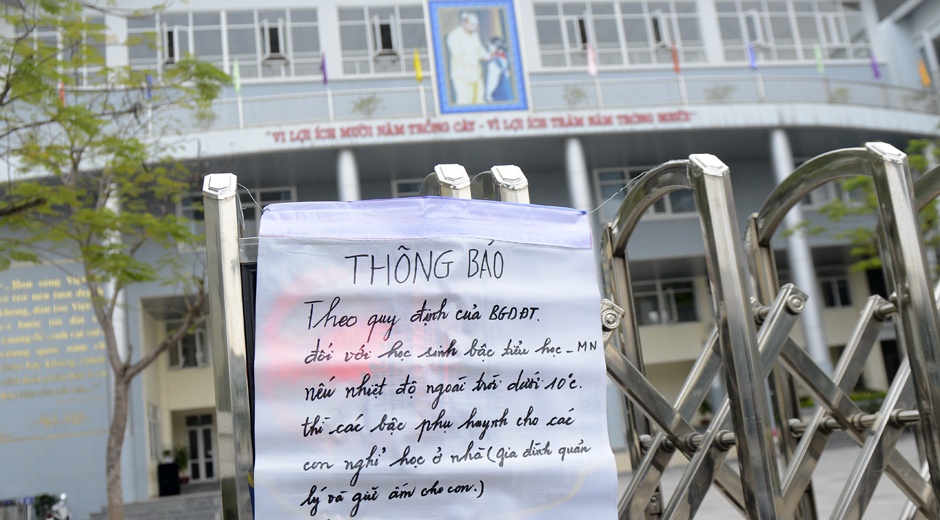 "VÌ LỢI ÍCH MƯỜI NĂM TRỒNG CÂY - VÌ LỢI ÍCH TRĂM NĂM TRỒNG NGƯỜI"
THÔNG BÁO
Theo quy định của BGDĐT.
đối với học sinh bậc tiểu học - MN
nếu nhiệt độ ngoài trời dưới 10°c.
thì các bậc phụ huynh cho các
con nghỉ học ở nhà (gia đình quản
lý và giữ ấm cho con.)